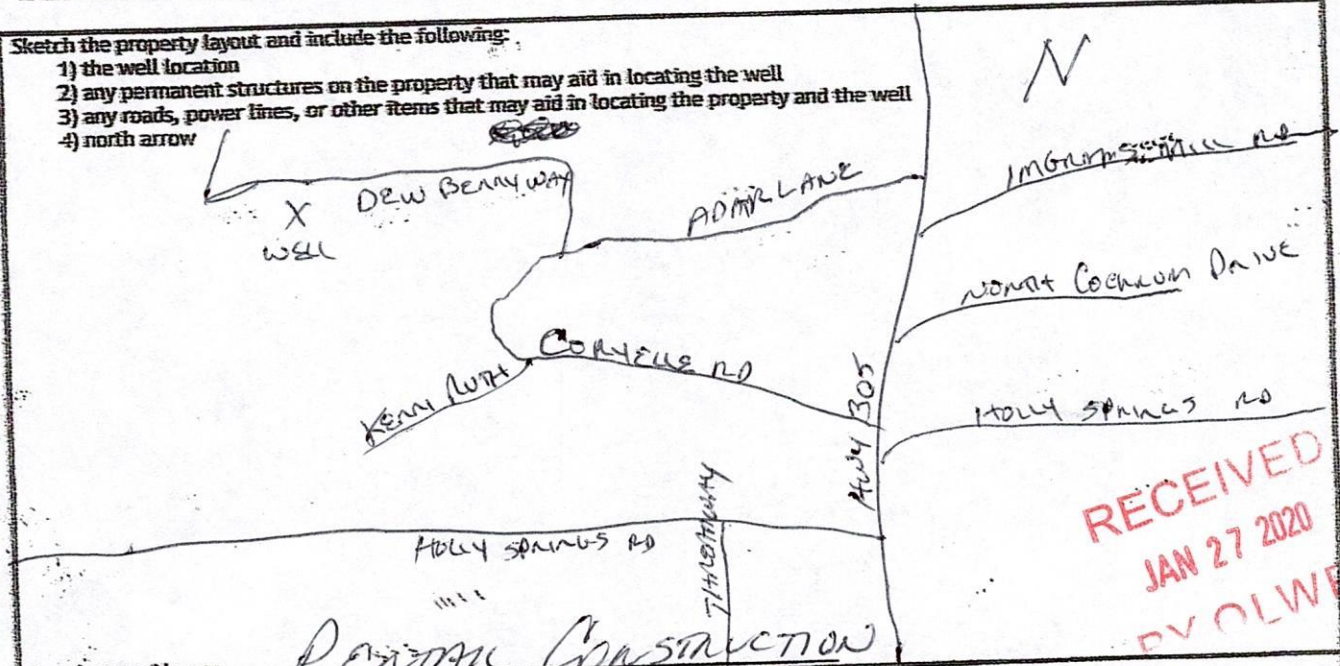 Sketch the property layout and include the following:
1) the well location
2) any permanent structures on the property that may aid in locating the well
3) any roads, power lines, or other items that may aid in locating the property and the well
4) north arrow
N
INGRAMS MILL RD
DEW BERRY WAY
ADAIR LANE
X
WELL
NORTH COCKRUM DRIVE
CORYELLE RD
KERRI RUTH
HWY 305
HOLLY SPRINGS RD
HOLLY SPRINGS RD
RECEIVED
JAN 27 2020
BY OLWR
CONSTRUCTION